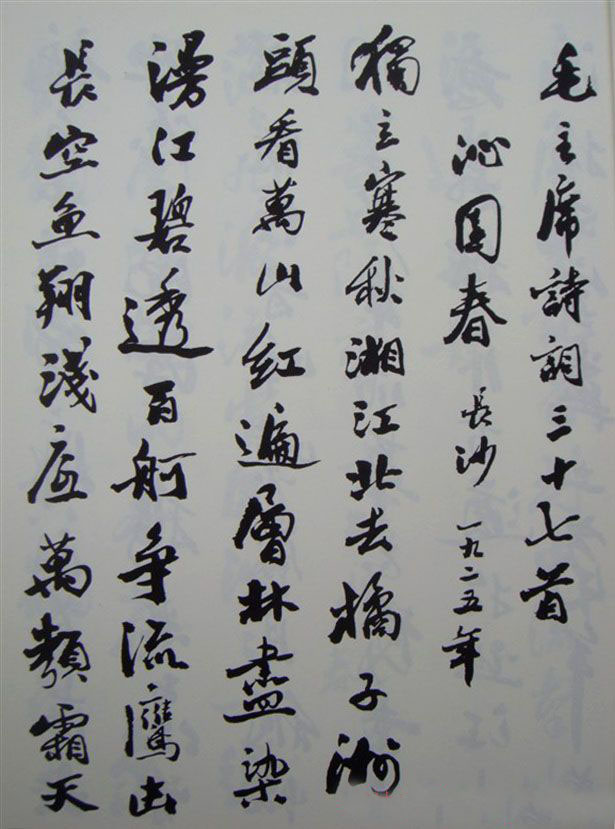 毛主席詩詞三十七首
沁園春 長沙 一九二五年
獨立寒秋湘江北去橘子洲
頭看萬山紅遍層林盡染
漫江碧透百舸爭流鷹擊
長空魚翔淺底萬類霜天